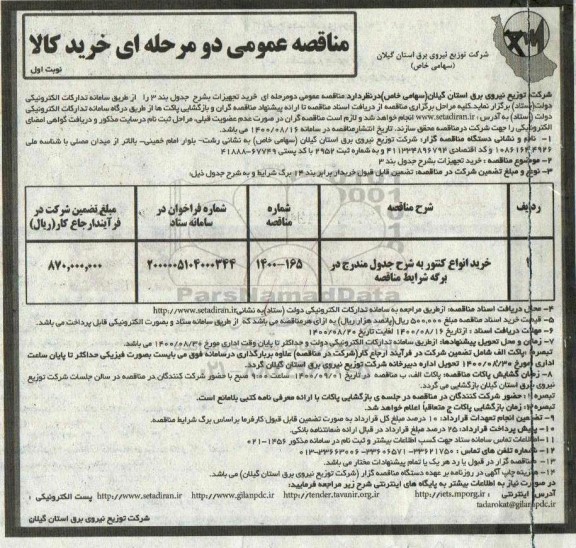 مناقصه عمومی دو مرحله ای خرید کالا
نوبت اول
شرکت توزیع نیروی برق استان گیلان
(سهامی خاص)
شرکت توزیع نیروی برق استان گیلان(سهامی خاص)درنظردارد مناقصه عمومی دومرحله ای خرید تجهیزات بشرح جدول بند ۳ را از طریق سامانه تدارکات الکترونیکی
دولت(ستاد) برگزار نماید.کلیه مراحل برگزاری مناقصه از دریافت اسناد مناقصه تا ارائه پیشنهاد مناقصه گران و بازگشایی پاکت ها از طریق درگاه سامانه تدارکات الکترونیکی
دولت (ستاد) به آدرس : www.setadiran.ir انجام خواهد شد و لازم است مناقصه گران در صورت عدم عضویت قبلی، مراحل ثبت نام درسایت مذکور و دریافت گواهی امضای
الکترونیکی را جهت شرکت درمناقصه محقق سازند. تاریخ انتشارمناقصه در سامانه ۱۴۰۰/۰۸/۱۶ می باشد.
۱- نام و نشانی دستگاه مناقصه گزار: شرکت توزیع نیروی برق استان گیلان (سهامی خاص) به نشانی رشت- بلوار امام خمینی- بالاتر از میدان مصلی با شناسه ملی
و کد اقتصادی ۴۱۱۳۳۴۸۹۶۷۹۴ و به شماره ثبت ۲۹۵۲ با کد پستی ۶۷۷۴۹-۴۱۸۸۸
۲- موضوع مناقصه : خرید تجهیزات بشرح جدول بند ۳
۳- نوع و مبلغ تضمین شرکت در مناقصه: تضمین قابل قبول خریدار برابر بند ۱۴ برگ شرایط و به شرح جدول ذیل:
ردیف	شرح مناقصه	شماره مناقصه	شماره فراخوان در سامانه ستاد	مبلغ تضمین شرکت در فرآیندارجاع کار(ریال)
۱	خرید انواع کنتور به شرح جدول مندرج در برگه شرایط مناقصه	۱۴۰۰-۱۶۵	۲۰۰۰۰۰۵۱۰۴۰۰۰۳۴۴	۸۷۰,۰۰۰,۰۰۰
ParsNamadData
۴- محل دریافت اسناد مناقصه: ازطریق مراجعه به سامانه تدارکات الکترونیکی دولت (ستاد)به نشانی http://www.setadiran.ir
۵- قیمت خرید اسناد مناقصه مبلغ ۵۰۰,۰۰۰ ریال(پانصد هزار ریال) به ازای هرمناقصه می باشد که از طریق سامانه ستاد و بصورت الکترونیکی قابل پرداخت می باشد.
۶- مهلت دریافت اسناد : ازتاریخ ۱۴۰۰/۰۸/۱۶ لغایت تاریخ ۱۴۰۰/۰۸/۲۰
۷- زمان و محل تحویل پیشنهادها: ازطریق سامانه تدارکات الکترونیکی دولت و حداکثر تا پایان وقت اداری مورخ ۱۴۰۰/۰۸/۳۰ می باشد.
تبصره :پاکت الف شامل تضمین شرکت در فرآیند ارجاع کار(شرکت در مناقصه) علاوه بربارگذاری درسامانه فوق می بایست بصورت فیزیکی حداکثر تا پایان ساعت
اداری مورخ ۱۴۰۰/۰۸/۳۰ تحویل اداره دبیرخانه شرکت توزیع نیروی برق استان گیلان گردد.
۸- زمان گشایش پاکات مناقصه: پاکات الف، ب مناقصه در تاریخ ۱۴۰۰/۰۹/۰۱ ساعت ۹:۰۰ صبح با حضور شرکت کنندگان در مناقصه در سالن جلسات شرکت توزیع
نیروی برق استان گیلان بازگشایی می گردد.
تبصره۱: حضور شرکت کنندگان در مناقصه در جلسه ی بازگشایی پاکات با ارائه معرفی نامه کتبی بلامانع است.
تبصره۲: زمان بازگشایی پاکات ج متعاقباً اعلام خواهد شد.
۹- تضمین انجام تعهدات قرارداد: ۱۰ درصد مبلغ کل قرارداد به صورت تضمین قابل قبول کارفرما براساس برگ شرایط مناقصه.
۱۰- پیش پرداخت قرارداد: ۲۵ درصد مبلغ قرارداد در قبال ارائه ضمانتنامه بانکی.
۱۱-اطلاعات تماس سامانه ستاد جهت کسب اطلاعات بیشتر و ثبت نام در سامانه مذکور ۱۴۵۶-۰۲۱
۱۲- شماره تلفن های تماس : ۳۳۶۲۱۷۵۰-۳۳۶۰۶۵۷۱-۳۳۶۶۳۰۰۶-۰۱۳
۱۳- مناقصه گزار در قبول یا رد هر یک یا تمام پیشنهادات مختار می باشد.
۱۴- هزینه چاپ آگهی در روزنامه بر عهده دستگاه مناقصه گزار (شرکت توزیع نیروی برق استان گیلان) می باشد.
در صورت نیاز به اطلاعات بیشتر به پایگاه های اینترنتی شرح زیر مراجعه فرمایید:
آدرس اینترنتی : http://iets.mporg.ir http://tender.tavanir.org.ir http://www.gilanpdc.ir http://www.setadiran.ir پست الکترونیکی :
tadarokat@gilanpdc.ir
شرکت توزیع نیروی برق استان گیلان